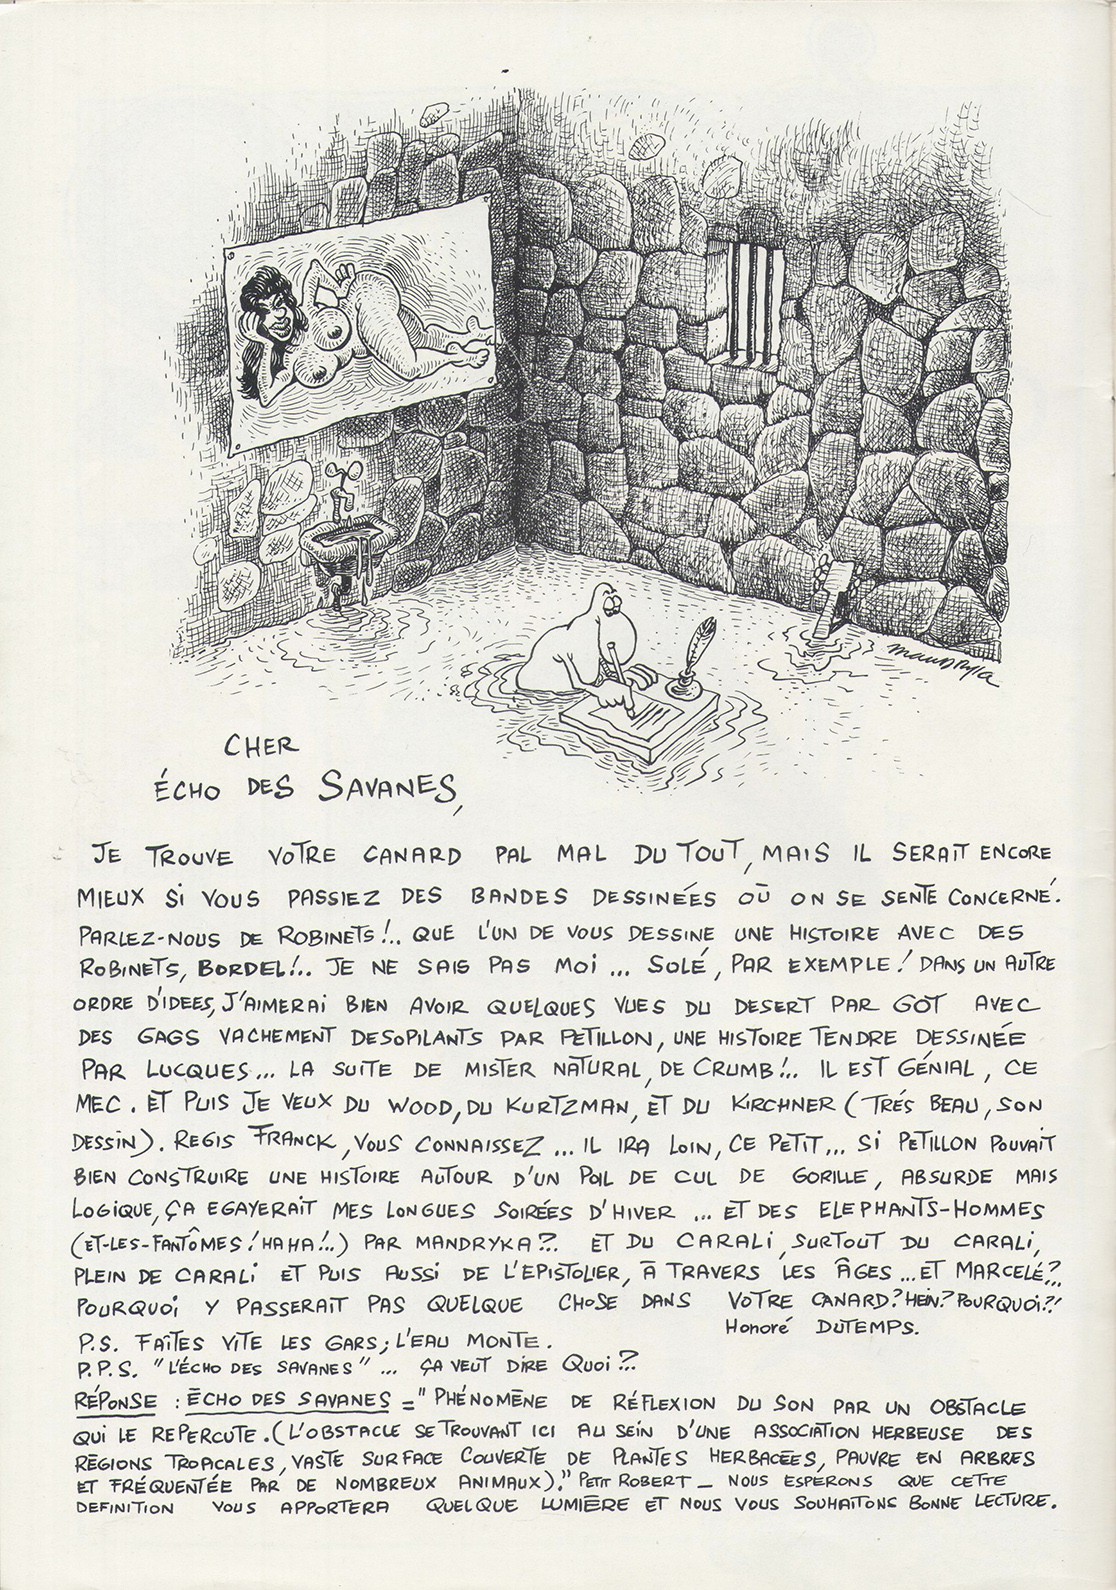 mandryka
CHER
ÉCHO DES SAVANES,
JE TROUVE VOTRE CANARD PAL MAL DU TOUT, MAIS IL SERAIT ENCORE
MIEUX SI VOUS PASSIEZ DES BANDES DESSINÉES OÙ ON SE SENTE CONCERNÉ.
PARLEZ-NOUS DE ROBINETS!.. QUE L'UN DE VOUS DESSINE UNE HISTOIRE AVEC DES
ROBINETS, BORDEL!.. JE NE SAIS PAS MOI... SOLÉ, PAR EXEMPLE! DANS UN AUTRE
ORDRE D'IDEES, J'AIMERAI BIEN AVOIR QUELQUES VUES DU DESERT PAR GOT AVEC
DES GAGS VACHEMENT DESOPILANTS PAR PETILLON, UNE HISTOIRE TENDRE DESSINÉE
PAR LUCQUES... LA SUITE DE MISTER NATURAL, DE CRUMB!.. IL EST GÉNIAL, CE
MEC. ET PUIS JE VEUX DU WOOD, DU KURTZMAN, ET DU KIRCHNER (TRÉS BEAU, SON
DESSIN). REGIS FRANCK, VOUS CONNAISSEZ... IL IRA LOIN, CE PETIT... SI PETILLON POUVAIT
BIEN CONSTRUIRE UNE HISTOIRE AUTOUR D'UN POIL DE CUL DE GORILLE, ABSURDE MAIS
LOGIQUE, ÇA EGAYERAIT MES LONGUES SOIRÉES D'HIVER... ET DES ELEPHANTS-HOMMES
(ET-LES-FANTÔMES! HA HA!..) PAR MANDRYKA?.. ET DU CARALI, SURTOUT DU CARALI,
PLEIN DE CARALI ET PUIS AUSSI DE L'EPISTOLIER, À TRAVERS LES ÂGES... ET MARCELÉ?..
POURQUOI Y PASSERAIT PAS QUELQUE CHOSE DANS VOTRE CANARD? HEIN? POURQUOI?!
Honoré DUTEMPS.
P.S. FAÎTES VITE LES GARS; L'EAU MONTE.
P.P.S. "L'ÉCHO DES SAVANES"... ÇA VEUT DIRE QUOI?..
RÉPONSE : ÉCHO DES SAVANES = "PHÉNOMÈNE DE RÉFLEXION DU SON PAR UN OBSTACLE
QUI LE REPERCUTE. (L'OBSTACLE SE TROUVANT ICI AU SEIN D'UNE ASSOCIATION HERBEUSE DES
RÉGIONS TROPICALES, VASTE SURFACE COUVERTE DE PLANTES HERBACÉES, PAUVRE EN ARBRES
ET FRÉQUENTÉE PAR DE NOMBREUX ANIMAUX)." PETIT ROBERT _ NOUS ESPERONS QUE CETTE
DEFINITION VOUS APPORTERA QUELQUE LUMIÈRE ET NOUS VOUS SOUHAITONS BONNE LECTURE.